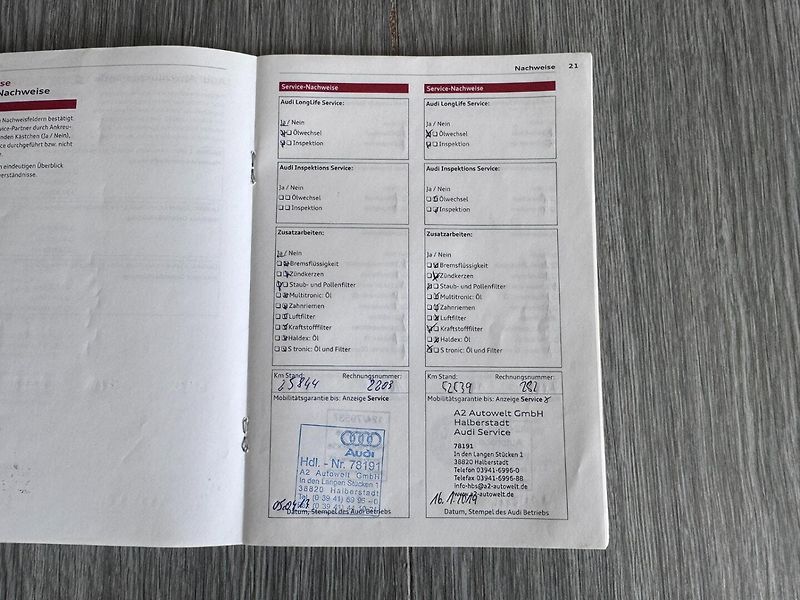 se
Nachweise
Nachweisfeldern bestätigt.
vice-Partner durch Ankreu-
nden Kästchen (Ja / Nein),
ce durchgeführt bzw. nicht
e.
n eindeutigen Überblick
verständnisse.
Nachweise 21
Service-Nachweise
Audi LongLife Service:
Ja / Nein
Ölwechsel
Inspektion
Audi Inspektions Service:
Ja / Nein
Ölwechsel
Inspektion
Zusatzarbeiten:
Ja / Nein
Bremsflüssigkeit
Zündkerzen
Staub- und Pollenfilter
Multitronic: Öl
Zahnriemen
Luftfilter
Kraftstofffilter
Haldex: Öl
S tronic: Öl und Filter
Km Stand: Rechnungsnummer:
25844 2208
Mobilitätsgarantie bis: Anzeige Service
Audi
Hdl. - Nr. 78191
A2 Autowelt GmbH
In den Langen Stücken 1
38820 Halberstadt
Datum, Stempel des Audi Betriebs
Service-Nachweise
Audi LongLife Service:
Ja / Nein
Ölwechsel
Inspektion
Audi Inspektions Service:
Ja / Nein
Ölwechsel
Inspektion
Zusatzarbeiten:
Ja / Nein
Bremsflüssigkeit
Zündkerzen
Staub- und Pollenfilter
Multitronic: Öl
Zahnriemen
Luftfilter
Kraftstofffilter
Haldex: Öl
S tronic: Öl und Filter
Km Stand: Rechnungsnummer:
52539 282
Mobilitätsgarantie bis: Anzeige Service
A2 Autowelt GmbH
Halberstadt
Audi Service
78191
In den Langen Stücken 1
38820 Halberstadt
Telefon 03941-6996-0
Telefax 03941-6996-88
info-hbs@a2-autowelt.de
www.a2-autowelt.de
16.1.2019
Datum, Stempel des Audi Betriebs